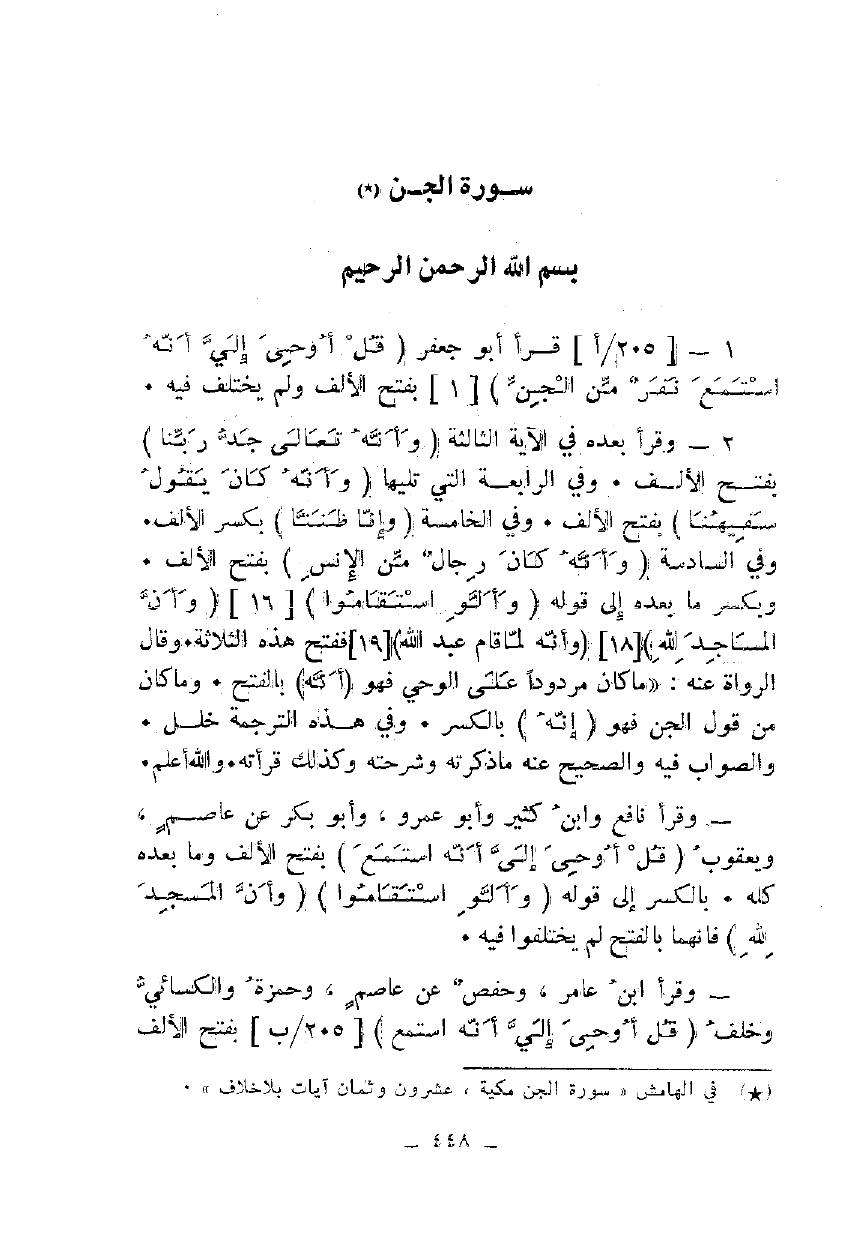 سـورة الجـن (★)
بسم الله الرحمن الرحيم
١ — [ ٢٠٥/أ ] قـرأ أبو جعفر ( قُلْ أُوحِيَ إِلَيَّ أَنَّهُ
اسْتَمَعَ نَفَرٌ مِّنَ الْجِنِّ ) [ ١ ] بفتح الألف ولم يختلف فيه ٠
٢ — وقرأ بعده في الآية الثالثة ( وَأَنَّهُ تَعَالَى جَدُّ رَبِّنَا )
بفتـح الألـف ٠ وفي الرابعـة التي تليها ( وَأَنَّهُ كَانَ يَقُولُ
سَفِيهُنَا ) بفتح الألف ٠ وفي الخامسة ( وإِنَّا ظَنَنَّا ) بكسر الألف٠
وفي السادسة ( وَأَنَّهُ كَانَ رِجالٌ مِّنَ الإِنسِ ) بفتح الألف ٠
وبكسر ما بعده إلى قوله ( وأَلَّوِ اسْتَقَامُوا ) [ ١٦ ] ( وَأَنَّ
المَسَاجِدَ لِلهِ)[١٨] (وأنّه لمّاقام عبد الله)[١٩]ففتح هذه الثلاثة٠وقال
الرواة عنه : «ماكان مردوداً عَلَى الوحي فهو (أَنَّهُ) بالفتح ٠ وماكان
من قول الجن فهو ( إِنَّهُ ) بالكسر ٠ وفي هـذه الترجمة خلـل ٠
والصواب فيه والصحيح عنه ماذكرته وشرحته وكذلك قرأته٠واللهأعلم٠
— وقرأ نافع وابنُ كثير وأبو عمرو ، وأبو بكر عن عاصـمٍ ،
ويعقوبُ ( قُلْ أُوحِيَ إِلَيَّ أَنَّه استَمَعَ ) بفتح الألف وما بعده
كله ٠ بالكسر إلى قوله ( وَأَلَّوِ اسْتَقَامُوا ) ( وأَنَّ المَسجِدَ
لِلهِ ) فانهما بالفتح لم يختلفوا فيه ٠
— وقرأ ابنُ عامر ، وحفصٌ عن عاصمٍ ، وحمزةُ والكسائيُّ
وخلفُ ( قُل أُوحِيَ إِلَيَّ أَنَّه استمع ) [ ٢٠٥/ب ] بفتح الألف
(★) في الهامش « سورة الجن مكية ، عشرون وثمان آيات بلاخلاف » ٠
— ٤٤٨ —